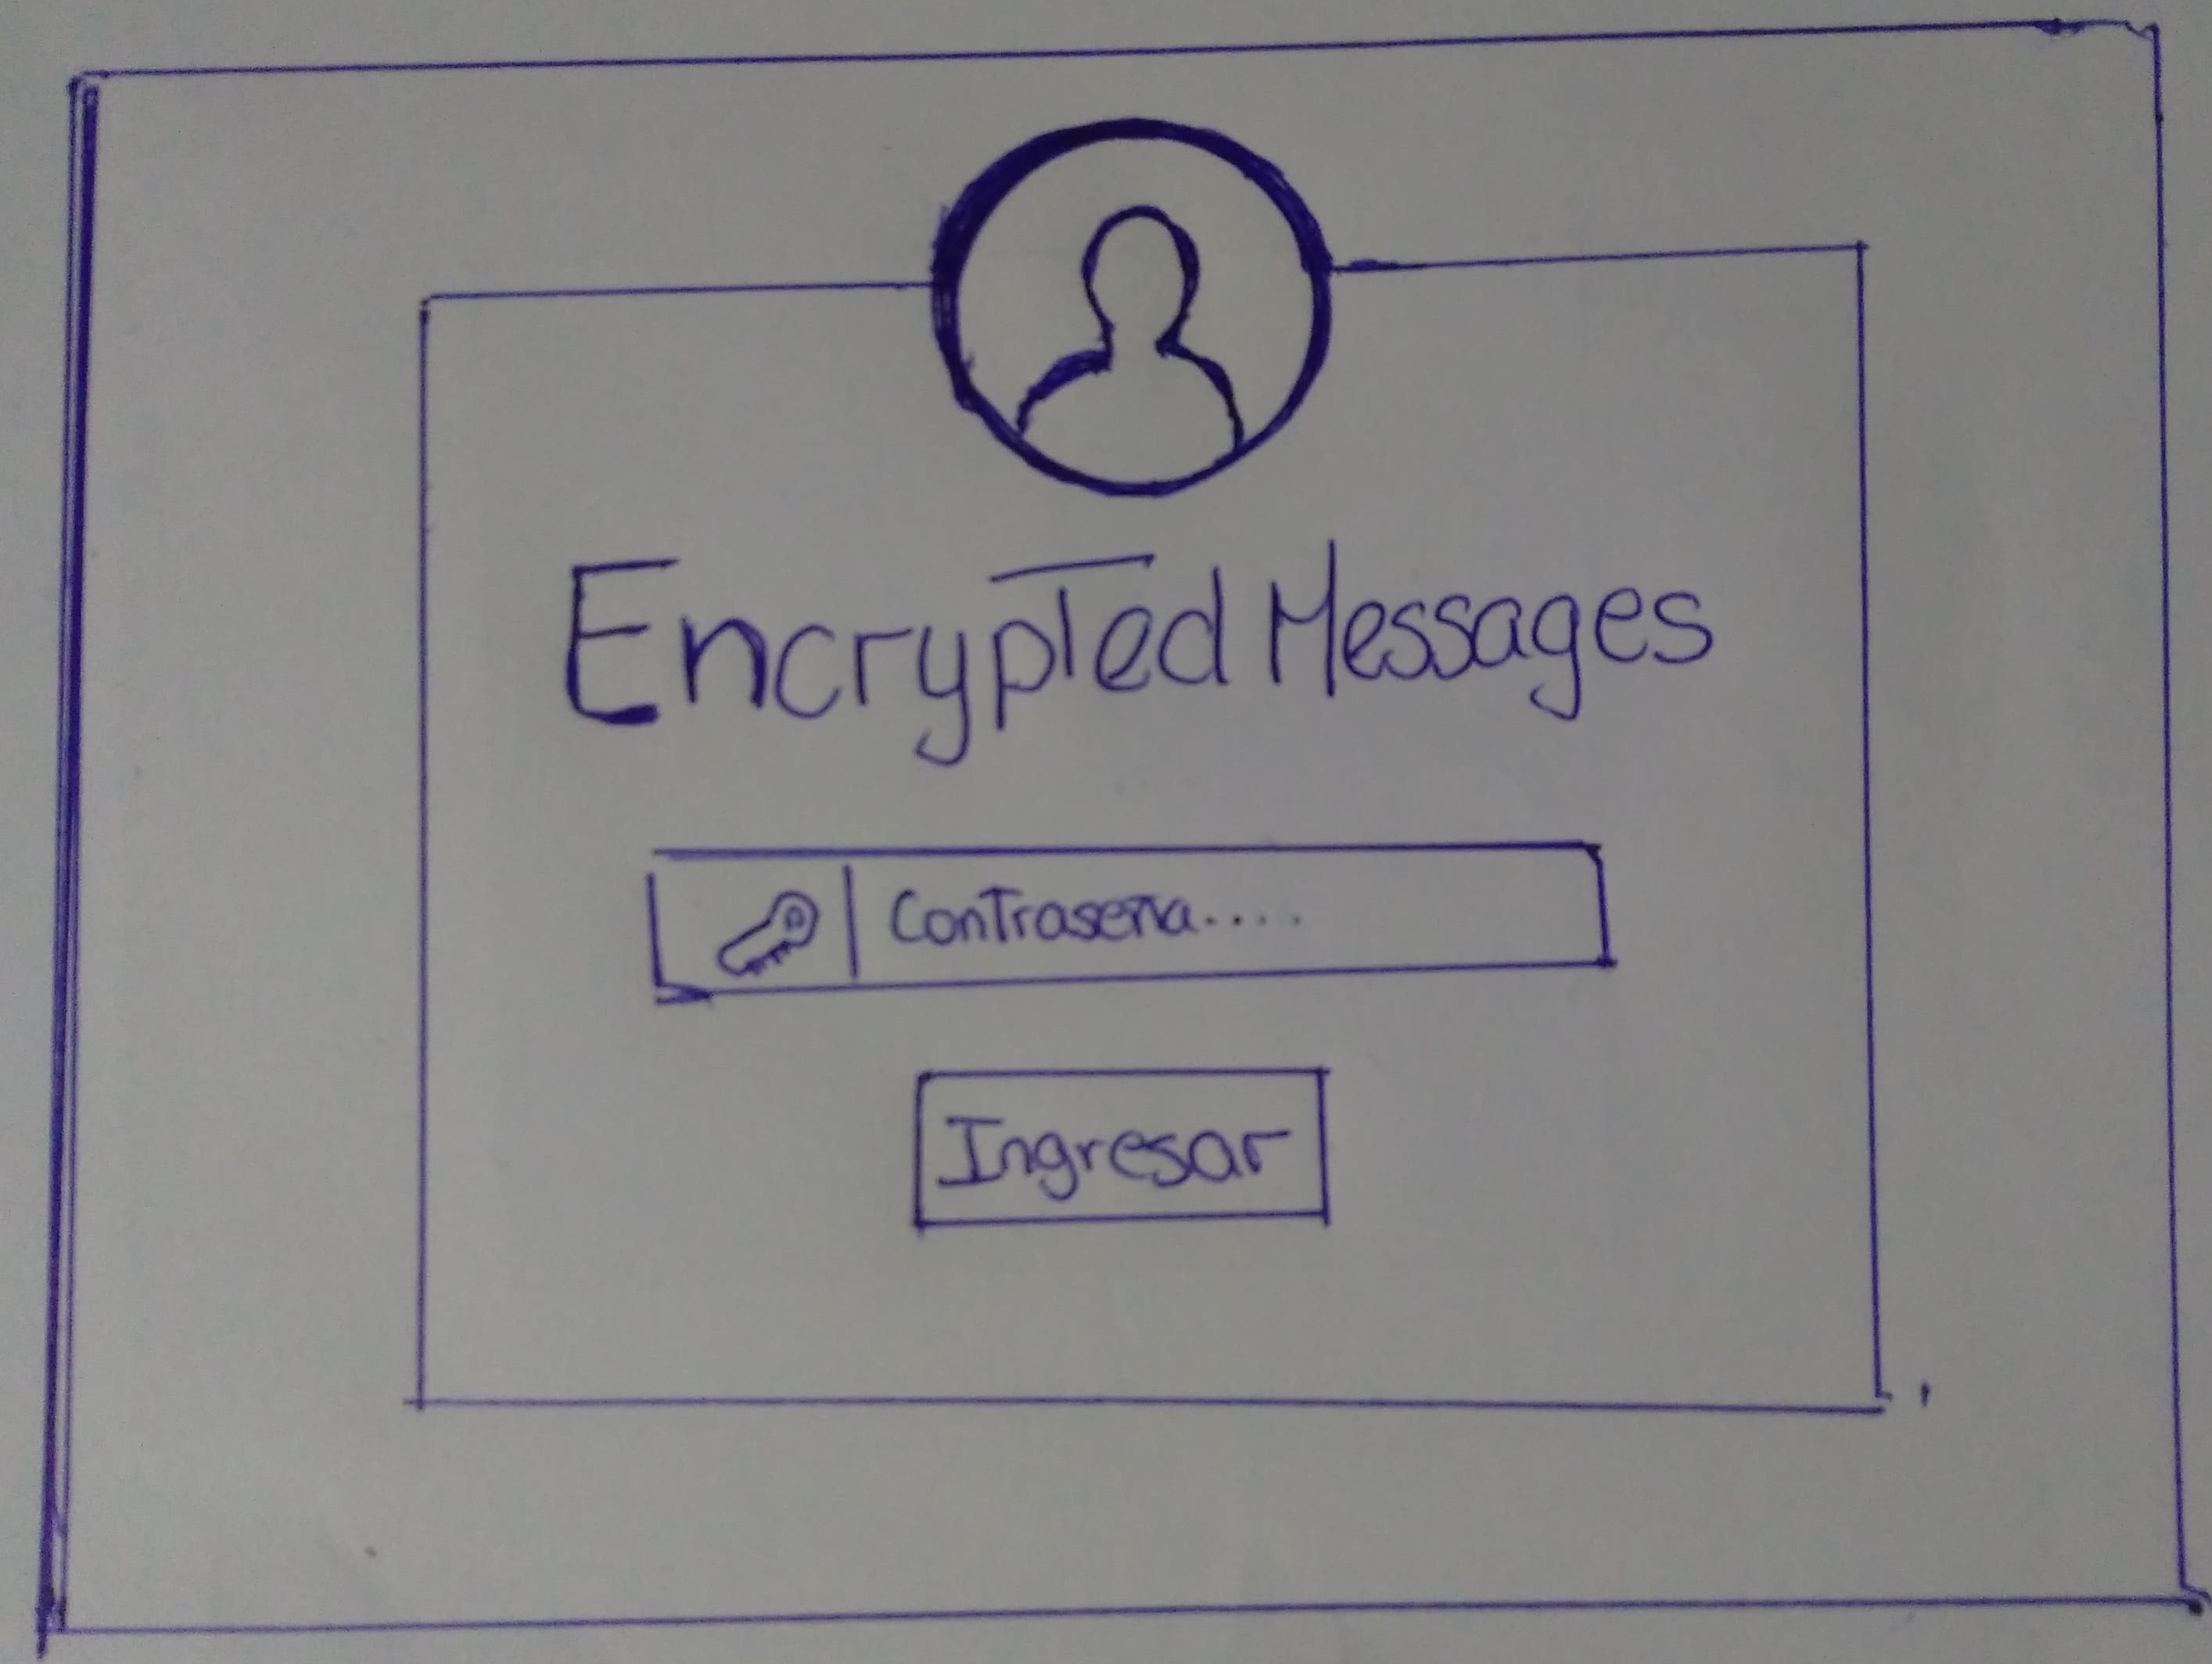 Encrypted Messages
Contraseña....
Ingresar